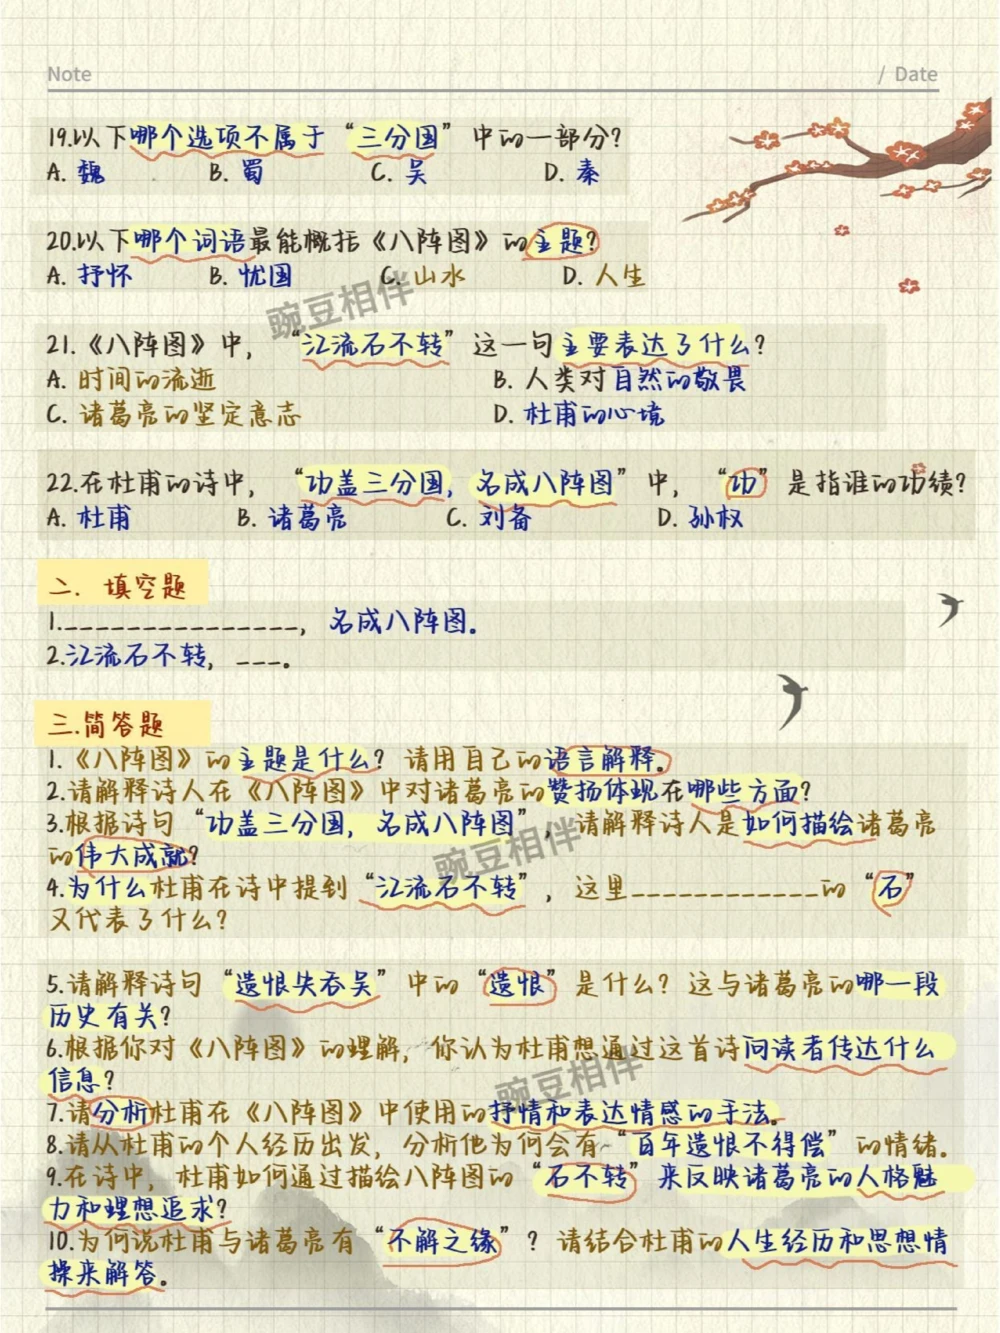 Note / Date
19.以下哪个选项不属于“三分国”中的一部分?
A. 魏 B. 蜀 C. 吴 D. 秦
20.以下哪个词语最能概括《八阵图》的主题?
A. 抒怀 B. 忧国 C. 山水 D. 人生
豌豆相伴
21.《八阵图》中，“江流石不转”这一句主要表达了什么?
A. 时间的流逝 B. 人类对自然的敬畏
C. 诸葛亮的坚定意志 D. 杜甫的心境
22.在杜甫的诗中，“功盖三分国，名成八阵图”中，“功”是指谁的功绩?
A. 杜甫 B. 诸葛亮 C. 刘备 D. 孙权
二. 填空题
1._________________，名成八阵图。
2.江流石不转，___。
三.简答题
1.《八阵图》的主题是什么? 请用自己的语言解释。
2.请解释诗人在《八阵图》中对诸葛亮的赞扬体现在哪些方面?
3.根据诗句“功盖三分国，名成八阵图”，请解释诗人是如何描绘诸葛亮
的伟大成就?
豌豆相伴
4.为什么杜甫在诗中提到“江流石不转”，这里_____________的“石”
又代表了什么?
5.请解释诗句“遗恨失吞吴”中的“遗恨”是什么? 这与诸葛亮的哪一段
历史有关?
6.根据你对《八阵图》的理解，你认为杜甫想通过这首诗向读者传达什么
信息?
豌豆相伴
7.请分析杜甫在《八阵图》中使用的抒情和表达情感的手法。
8.请从杜甫的个人经历出发，分析他为何会有“百年遗恨不得偿”的情绪。
9.在诗中，杜甫如何通过描绘八阵图的“石不转”来反映诸葛亮的人格魅
力和理想追求?
10.为何说杜甫与诸葛亮有“不解之缘”? 请结合杜甫的人生经历和思想情
操来解答。